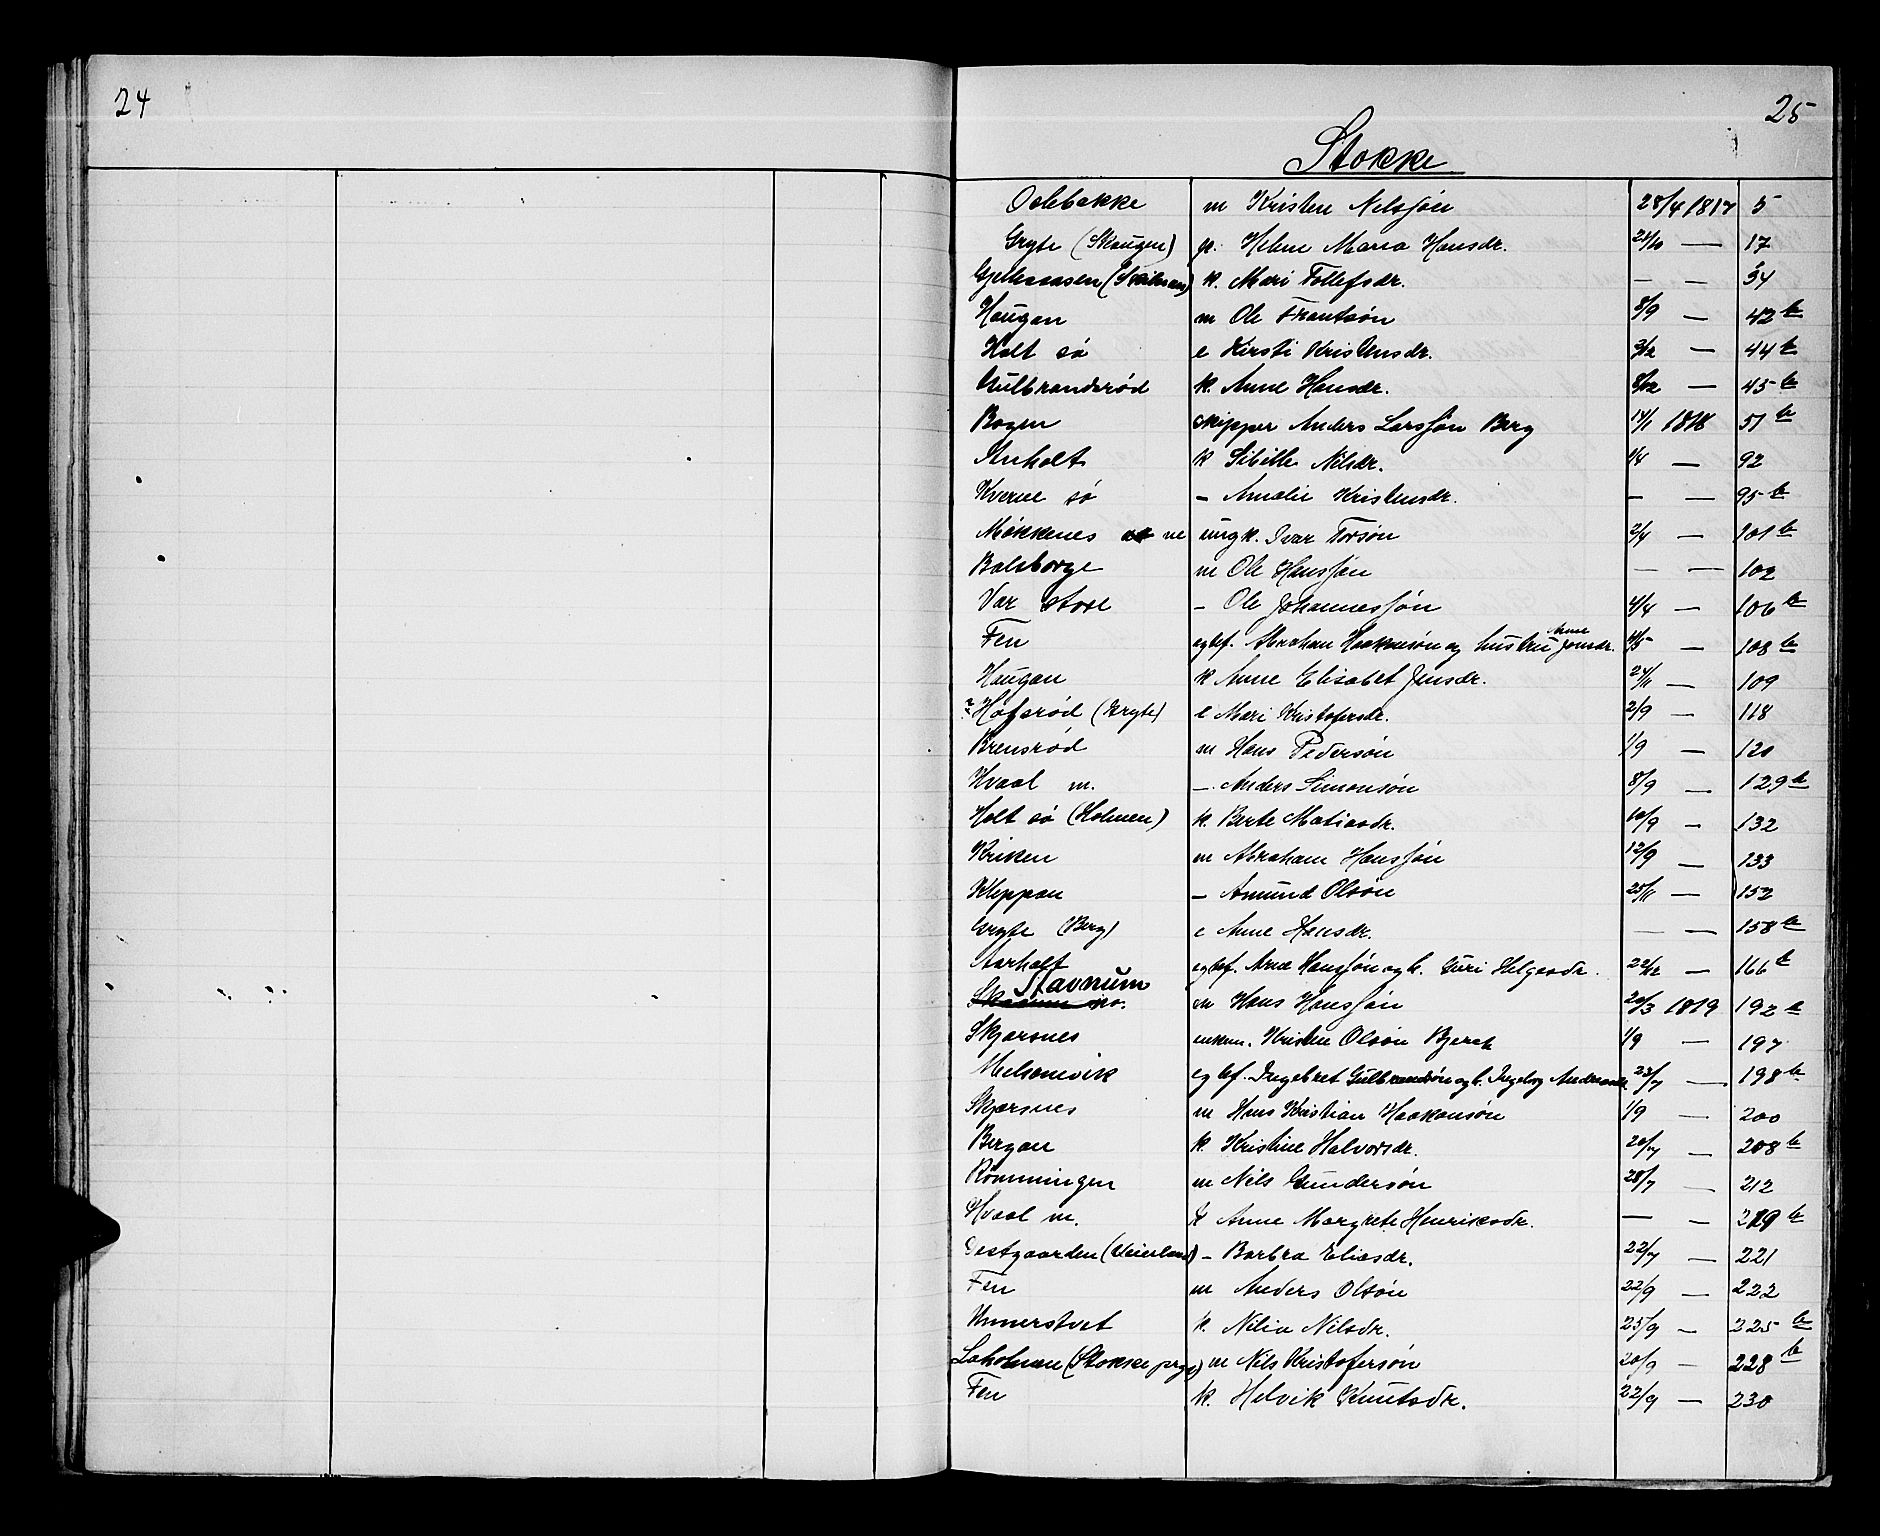 24
25
Stokke
Oelebakke m Kristen Nilssøn 28/4 1817 5
Gryte (Skaugen) p. Helene Maria Hansdr. 21/10 — 17
Gjellesaasen k. Mari Tollefsdr. — — 34
Haugan m Ole Frantsøn 8/9 — 42 b
Holt sø e Kirsti Kristensdr. 3/12 — 44 b
Gulbrandsrød k. Anne Hansdr. 8/12 — 45 b
Bogen skipper Anders Larssøn Berg 14/1 1818 51 b
Aarholt k Sibille Nilsdr. 1/4 — 92
Kverne sø – Amalie Kristensdr. – — 95 b
Møkkenes ne ungk. Ivar Torsøn 2/4 — 101 b
Bolsborge m Ole Hanssøn — — 102
Var store – Ole Johannessøn 4/4 — 106 b
Fen egtef. Abraham Haakonsøn og hustru Anne Jonsdr. 4/5 — 108 b
Haugan k Anne Elisabet Jensdr. 24/11 — 109
n: Hafsrød (Gryte) e Mari Kristofersdr. 2/9 — 118
Brensrød m Hans Pedersøn 1/9 — 120
Hvaal m. –. Anders Simonsøn 8/9 — 129 b
Holt sø (Holmen) k. Berte Matiasdr. 10/9 — 132
Kriken m Abraham Hanssøn 12/9 — 133
Kleppan – Amund Olsøn 25/11 — 152
Gryte (Berg) e Anne Hansdr. — — 158 b
Aarholt egtef. Arne Hanssøn og h. Guri Helgesdr. 22/12 — 166 b
Stavnum m Hans Hanssøn 20/3 1819 192 b
Skjærsnes enkem. Kristen Olsøn Bjerch 1/9 — 197
Melsomvik egtef. Ingebret Gulbrandsøn og h. Ingeborg Andersdr. 23/7 — 198 b
Skjærsnes m Hans Kristian Haakonsøn 1/9 — 200
Bergan k. Kristine Halvorsdr. 20/7 — 208 b
Rømmingen m Nils Gundersøn 28/7 — 212
Hvaal m. k Anne Margrete Henriksdr. — — 219 b
Vestgaarden (Veierland) – Barbra Eliasdr. 22/7 — 221
Fen m Anders Olsøn 22/9 — 222
Unnerstvet k. Nilia Nilsdr. 25/9 — 225 b
Laholmen (Stokke prgj.) m Nils Kristofersøn 20/9 – 228 b
Fen k. Helvik Knutsdr. 22/9 — 230